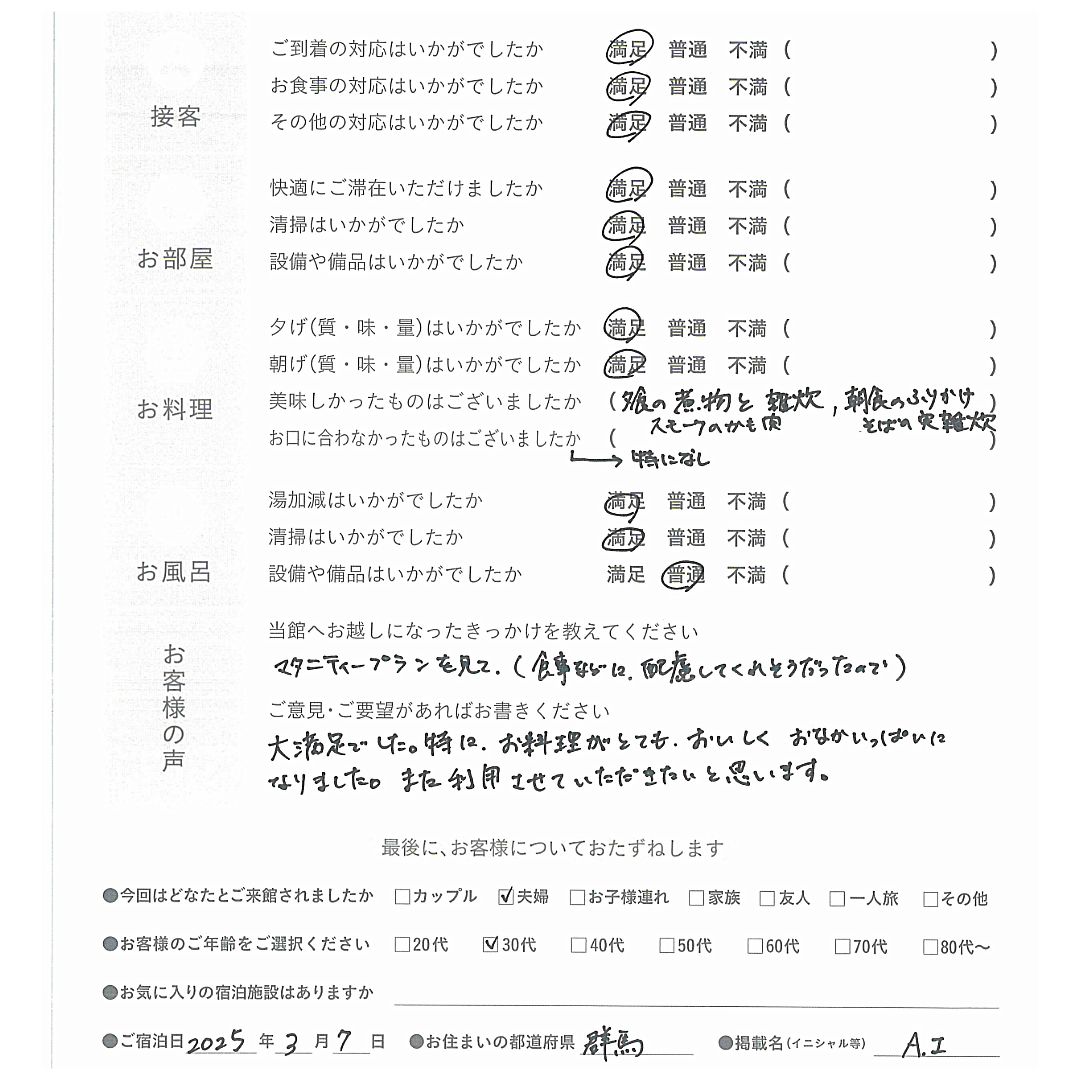 接客
ご到着の対応はいかがでしたか 満足 普通 不満 ( )
お食事の対応はいかがでしたか 満足 普通 不満 ( )
その他の対応はいかがでしたか 満足 普通 不満 ( )
お部屋
快適にご滞在いただけましたか 満足 普通 不満 ( )
清掃はいかがでしたか 満足 普通 不満 ( )
設備や備品はいかがでしたか 満足 普通 不満 ( )
お料理
夕げ(質・味・量)はいかがでしたか 満足 普通 不満 ( )
朝げ(質・味・量)はいかがでしたか 満足 普通 不満 ( )
美味しかったものはございましたか (夕食の煮物と雑炊,朝食のふりかけ)
スモークのかも肉 そばの実雑炊
お口に合わなかったものはございましたか ( )
→特になし
お風呂
湯加減はいかがでしたか 満足 普通 不満 ( )
清掃はいかがでしたか 満足 普通 不満 ( )
設備や備品はいかがでしたか 満足 普通 不満 ( )
お客様の声
当館へお越しになったきっかけを教えてください
マタニティープランを見て.(食事などに.配慮してくれそうだったので)
ご意見・ご要望があればお書きください
大満足でした。特に.お料理がとても.おいしく おなかいっぱいに
なりました。また利用させていただきたいと思います。
最後に、お客様についておたずねします
●今回はどなたとご来館されましたか □カップル ☑夫婦 □お子様連れ □家族 □友人 □一人旅 □その他
●お客様のご年齢をご選択ください □20代 ☑30代 □40代 □50代 □60代 □70代 □80代〜
●お気に入りの宿泊施設はありますか
●ご宿泊日2025年3月7日 ●お住まいの都道府県 群馬 ●掲載名(イニシャル等) A.I